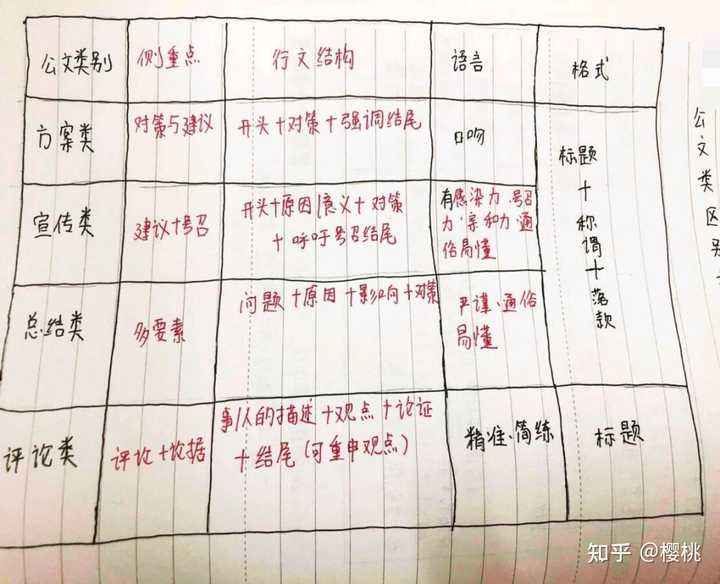 公文类别
侧重点
行文结构
语言
格式
方案类
对策与建议
开头+对策+强调结尾
口吻
标题
+
称谓
+
落款
宣传类
建议+号召
开头+原因|意义+对策
+呼吁号召结尾
有感染力·号召
力·亲和力·通
俗易懂
总结类
多要素
问题+原因+影响+对策
严谨·通俗
易懂
评论类
评论+论据
的描述+观点+论证
+结尾(可重申观点)
精准·简练
标题
公文类区别
知乎 @樱桃